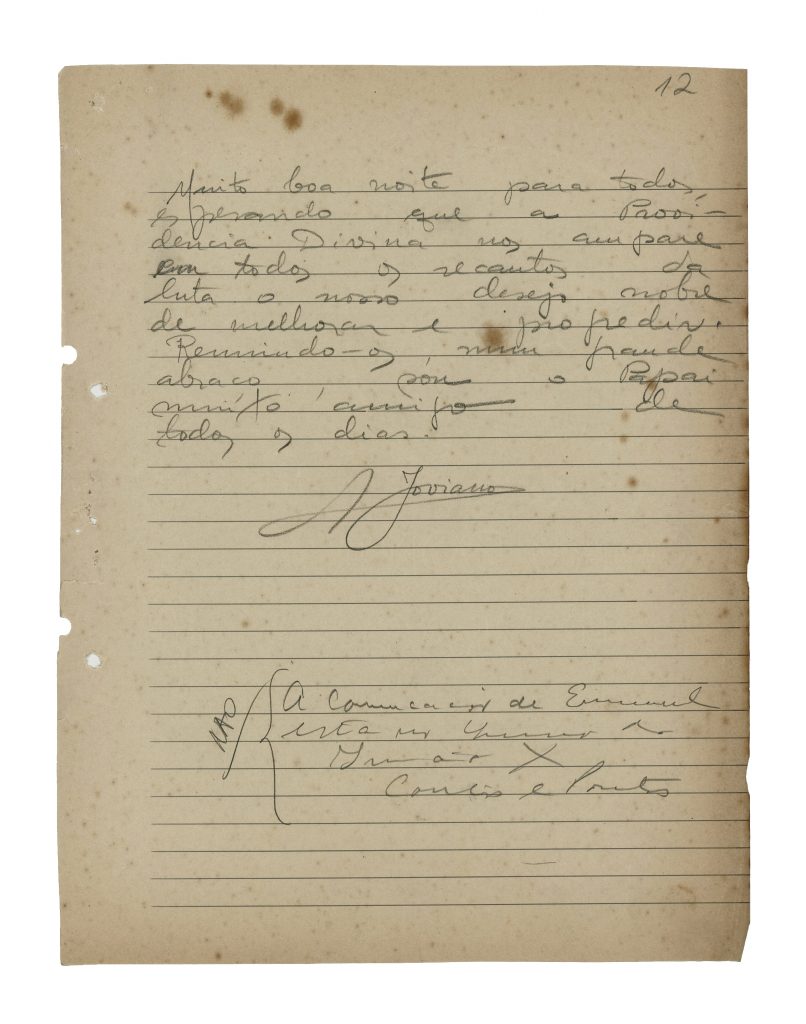 12
Muito boa noite para todos,
esperando que a Provi-
dencia Divina nos ampare
em todos os recantos da
luta o nosso desejo nobre
de melhorar e progredir.
Reunindo-os num grande
abraço, sou o Papai
muito amigo de
todos os dias.
A Joviano
NÃO
A Comunicação de Emmanuel
está no do
Irmão X
Contos e Pontos